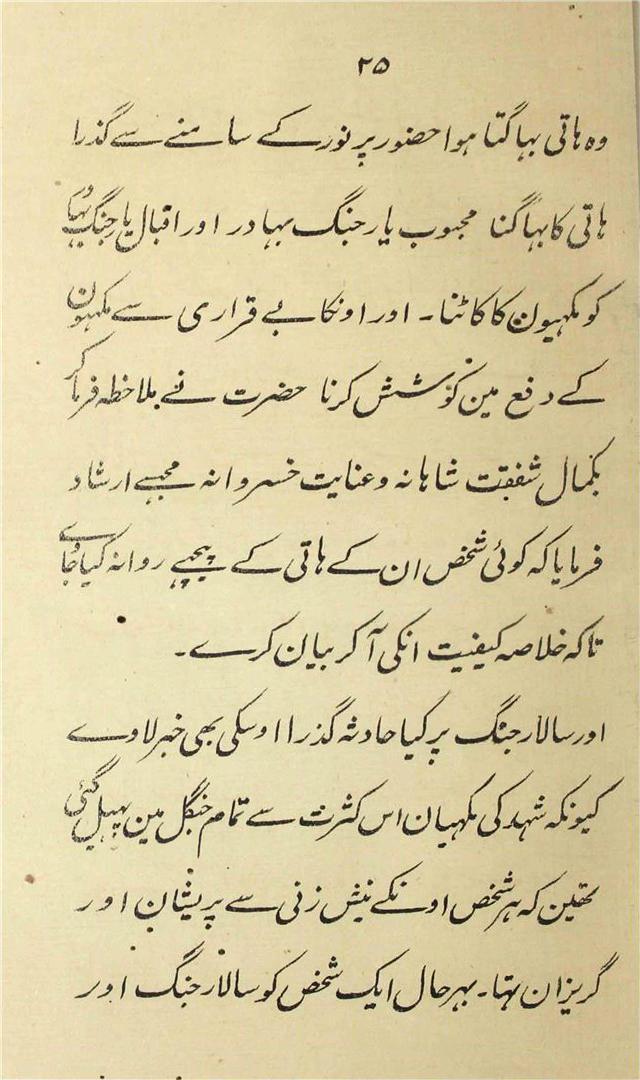 ۲۵
وہ ہاتی بہاگتا ہوا حضور پر نور کے سامنے سے گذرا
ہاتی کا بہاگنا محبوب یار جنگ بہادر اور اقبال یار جنگ بہادر
کو مکہیون کا کاٹنا۔ اور اونکا بے قراری سے مکہیون
کے دفع مین کوشش کرنا حضرت نے ملاحظہ فرما کر
بکمال شفقت شاہانہ و عنایت خسروانہ مجہسے ارشاد
فرمایا کہ کوئی شخص ان کے ہاتی کے پیچہے روانہ کیا جاوے
تاکہ خلاصہ کیفیت انکی آکر بیان کرے۔
اور سالار جنگ پر کیا حادثہ گذرا اوسکی بھی خبر لاوے
کیونکہ شہد کی مکہیان اس کثرت سے تمام جنگل مین پہیل گئی
تھین کہ ہر شخص اونکے نیش زنی سے پریشان اور
گریزان تہا۔ بہر حال ایک شخص کو سالار جنگ اور